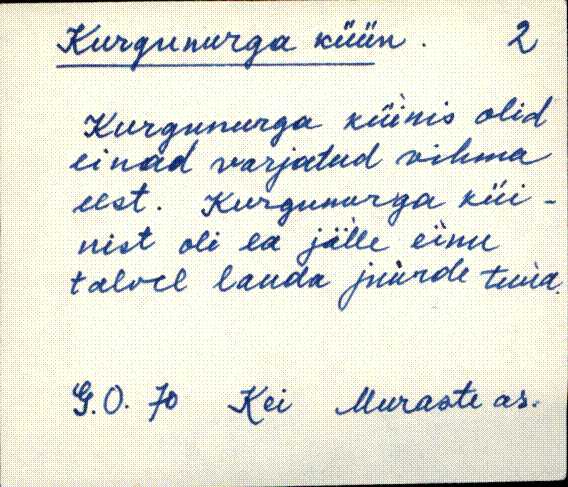 Kurgunurga küün. 2
Kurgunurga küìnis olid
einad varjatud vihma
eest. Kurgunurga küi-
nist oli ea jälle einu
talvel lauda juurde tuua.
G.O. 70 Kei Muraste as.